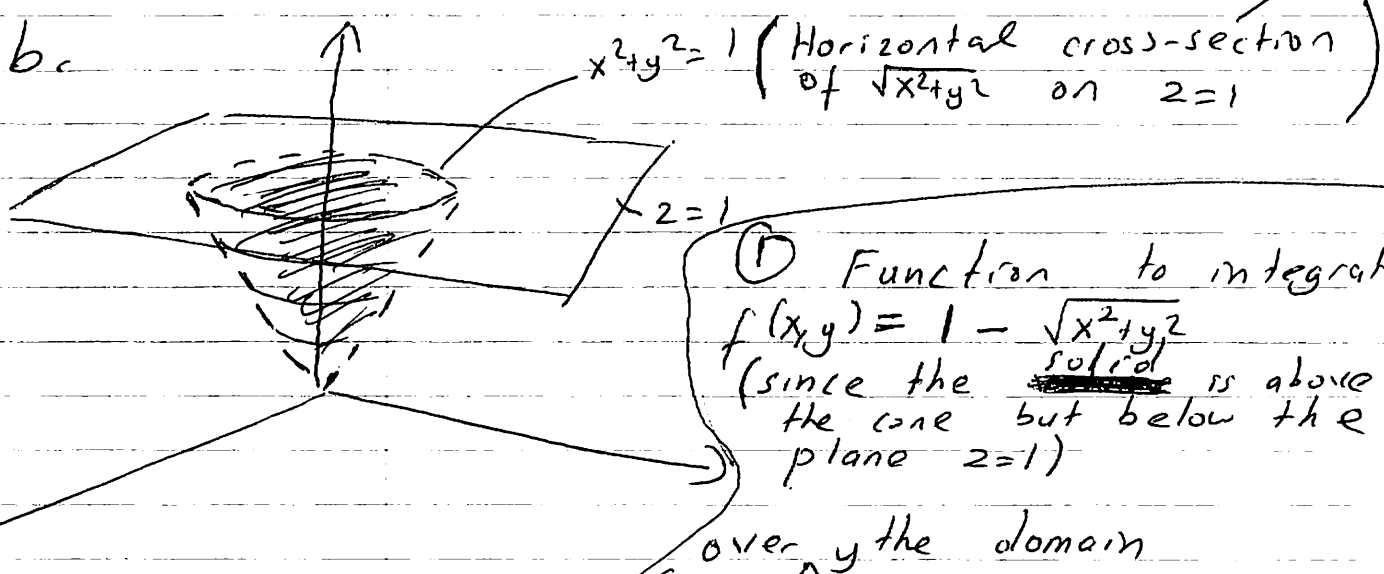 b.
x²+y²=1 (Horizontal cross-section
of √x²+y² on z=1)
z=1
① Function to integrat
f(x,y) = 1 - √x²+y²
(since the solid is above
the cone but below the
plane z=1)
over the domain
y